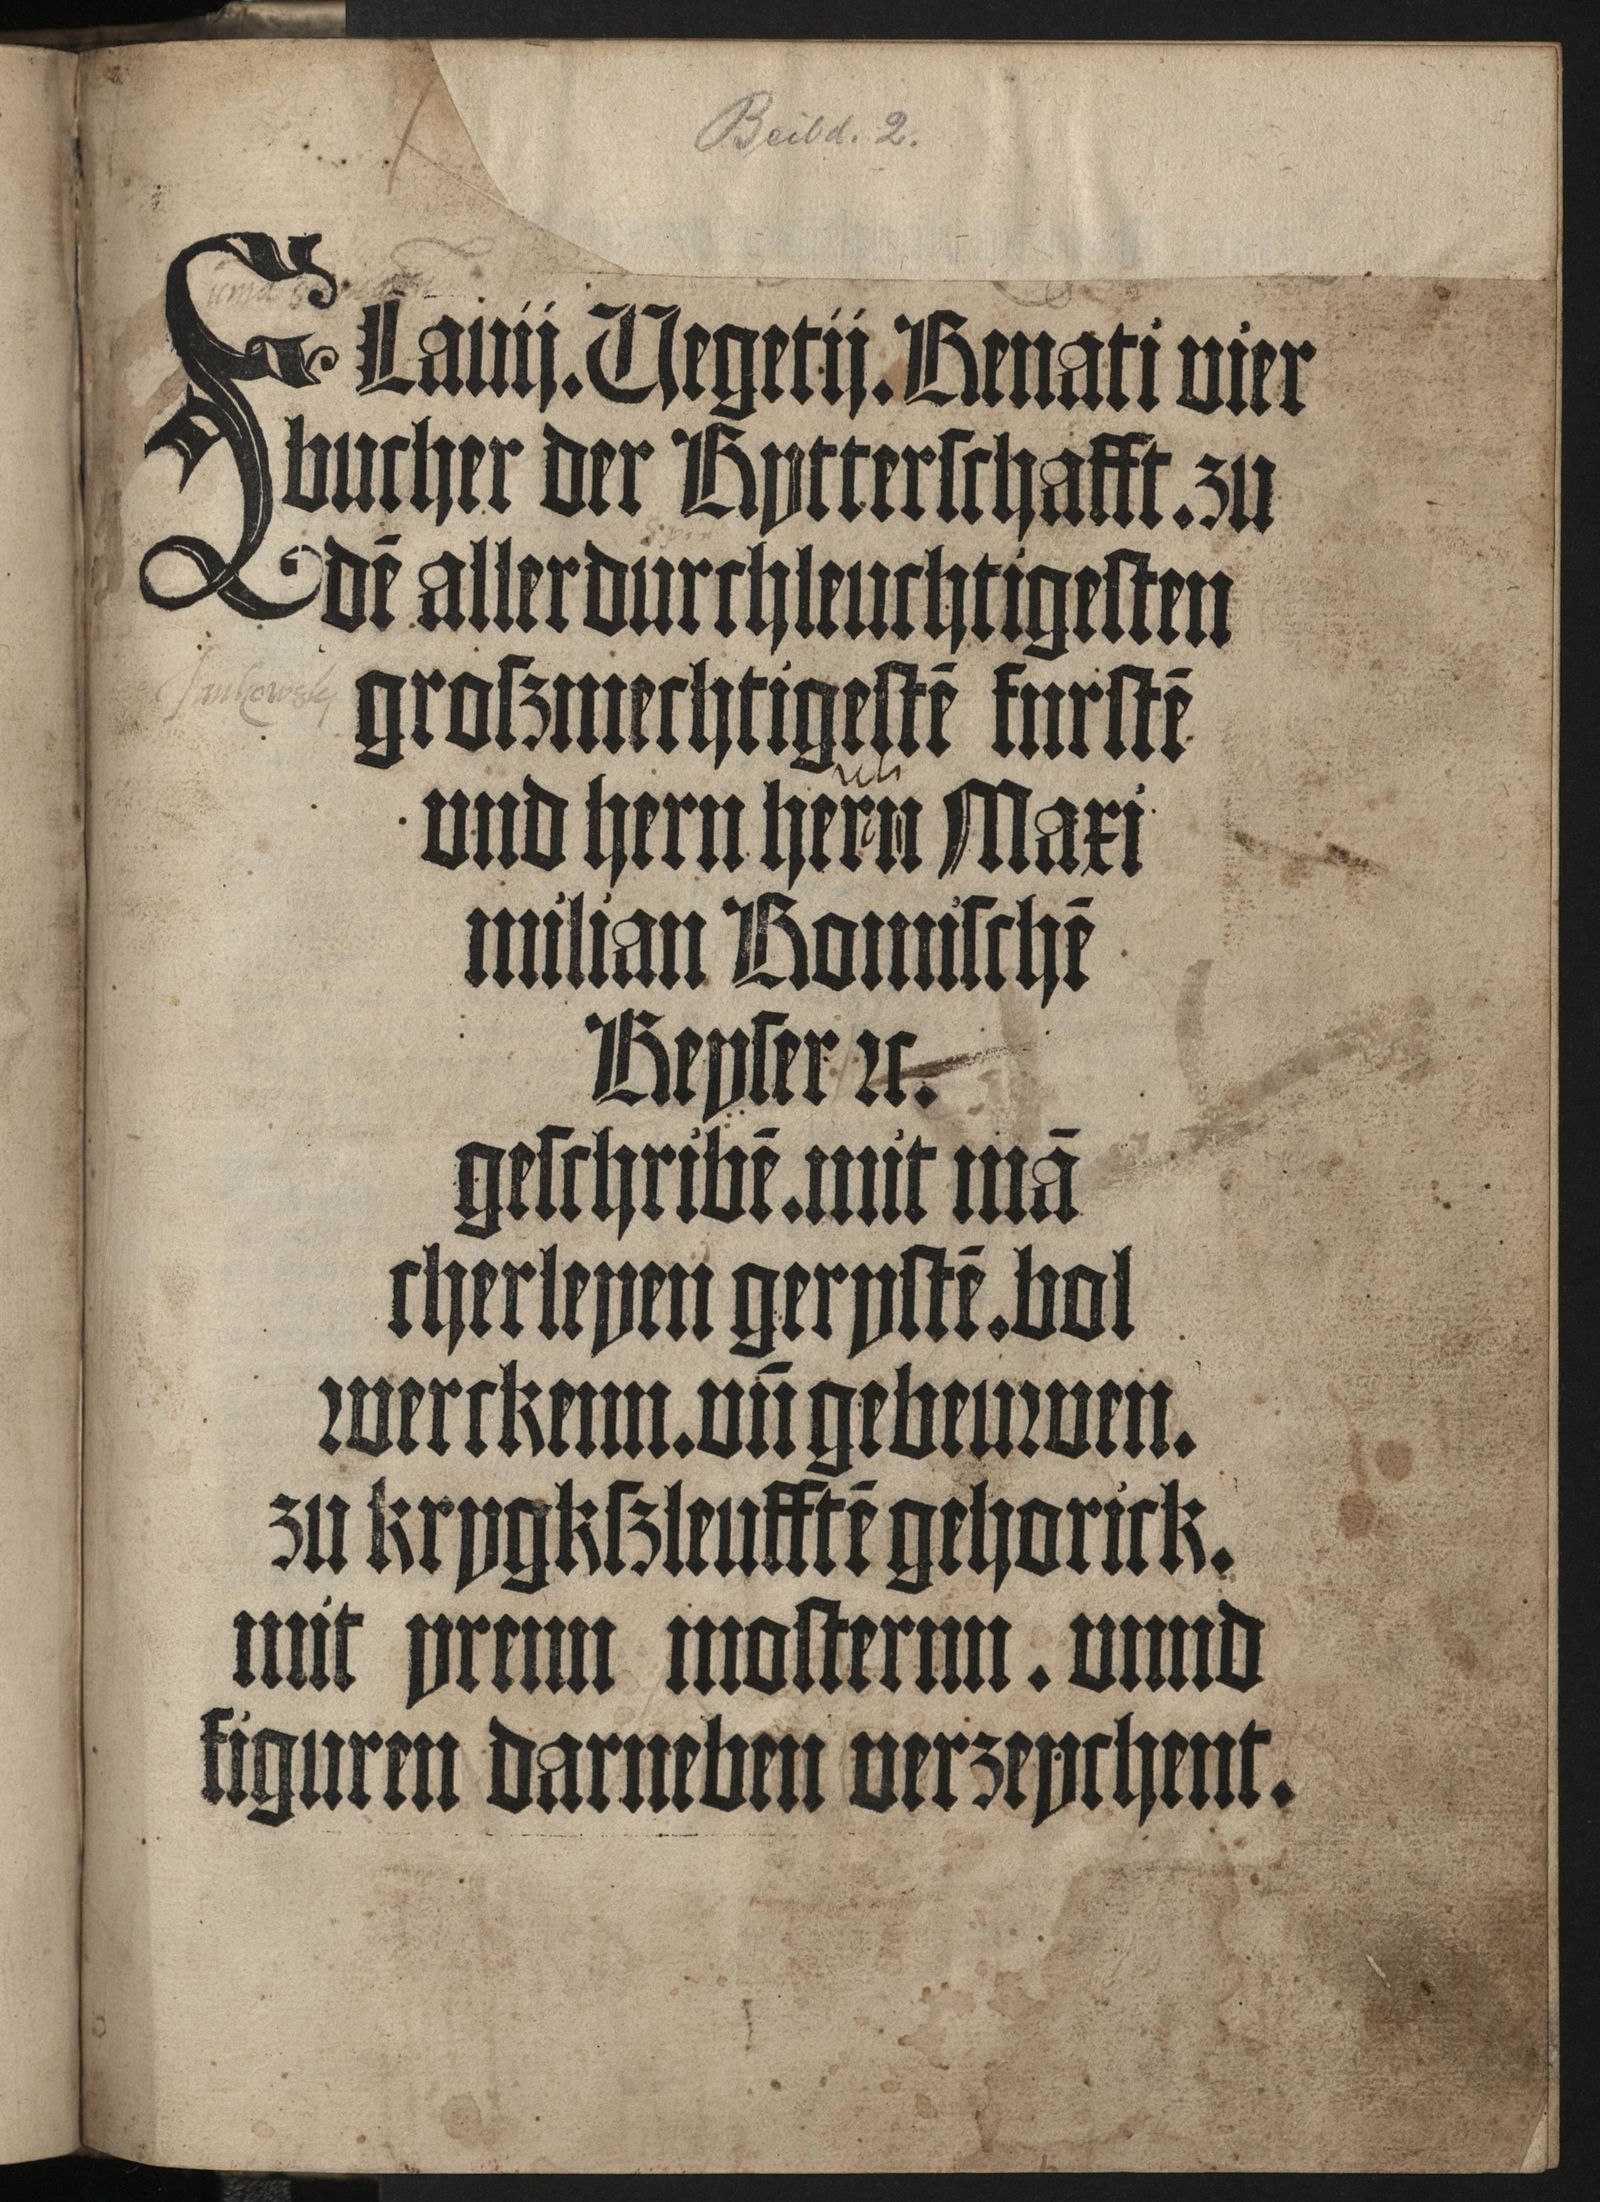 Beibd. 2.
FLauij. Uegetij. Renati vier
bucher der Rytterschafft. zu
dē allerdurchleuchtigesten
groszmechtigestē furstē
vnd hern hern Maxi
milian Romischē
Keyser ꝛc.
geschribē. mit mā
cherleyen gerystē. bol
werckenn. vn̄ gebeuwen.
zu krygkszleufftē gehorick.
mit yrenn mosternn. vnnd
figuren darneben verzeychent.